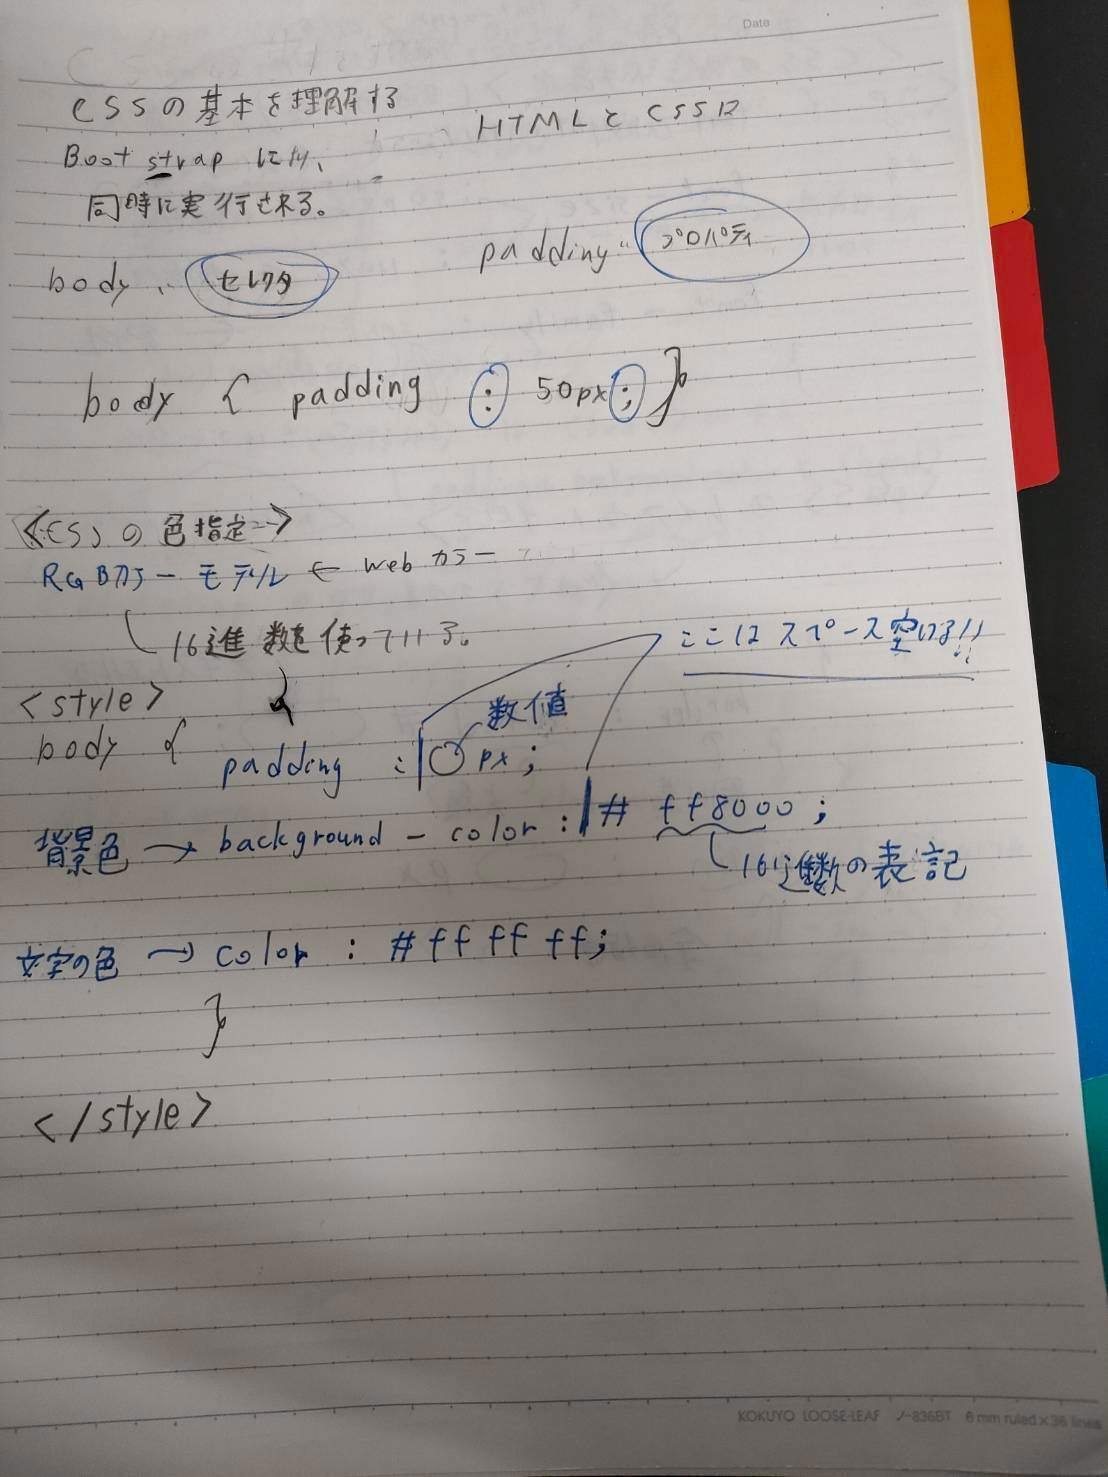 Date
CSSの基本を理解する
HTMLとCSSは
Bootstrap により、
同時に実行される。
body、 セレクタ
padding" プロパティ
body { padding : 50px; }
<CSSの色指定→>
RGBカラーモデル ← webカラー
16進数を使っている。
ここはスペース空ける!!
<style>
{
数値
body {
padding : ○ px;
背景色 → background - color : # ff8000 ;
16進数の表記
文字の色 → color : # ff ff ff;
}
</style>
KOKUYO LOOSE-LEAF ノ-836BT 6 mm ruled×36 lines